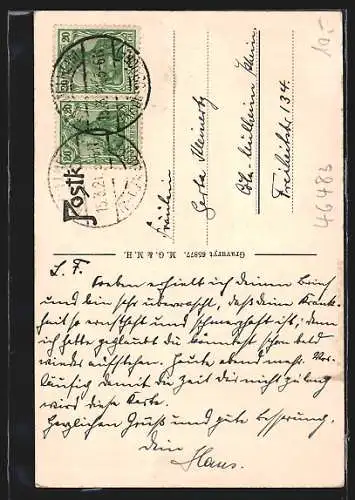 10,-
46483
Postk
20
20
15.3.21.
Fräulein
Gerta Meinertz
Cöln-Mülheim Rhein
Freiheitstr 134
Gravuryt 65877. M. G. & M. H.
L. F. Soeben erhielt ich deinen Brief
und bin sehr überrascht, daß deine Krank-
heit so ernsthaft und schmerzhaft ist, denn
ich hatte geglaubt du könntest schon bald
wieder aufstehen. Heute abend mehr. Vor-
läufig damit dir die Zeit nicht zu lang
wird diese Karte.
Herzlichen Gruß und gute Besserung.
Dein
Hans.